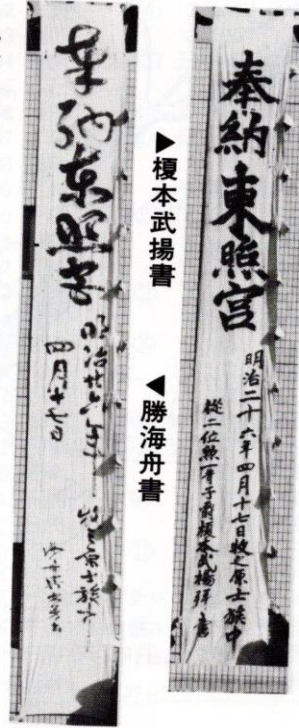 奉納東照宮
明治二十六年四月十七日牧之原士族中
従二位勲一等子爵榎本武揚拝書
▶榎本武揚書
◀勝海舟書
奉納東照宮
明治廿六年
四月十七日
牧之原士族中